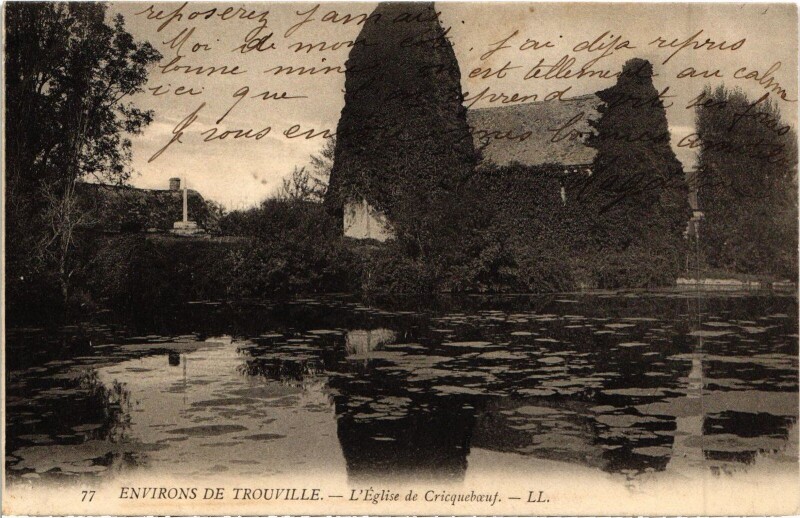 reposerez jamais
Moi de mon côté, j'ai déja repris
bonne mine, on est tellement au calme
ici que l'on reprend forces
Je vous envoie mes bonnes amitiés
77 ENVIRONS DE TROUVILLE. — L'Église de Cricquebœuf. — LL.